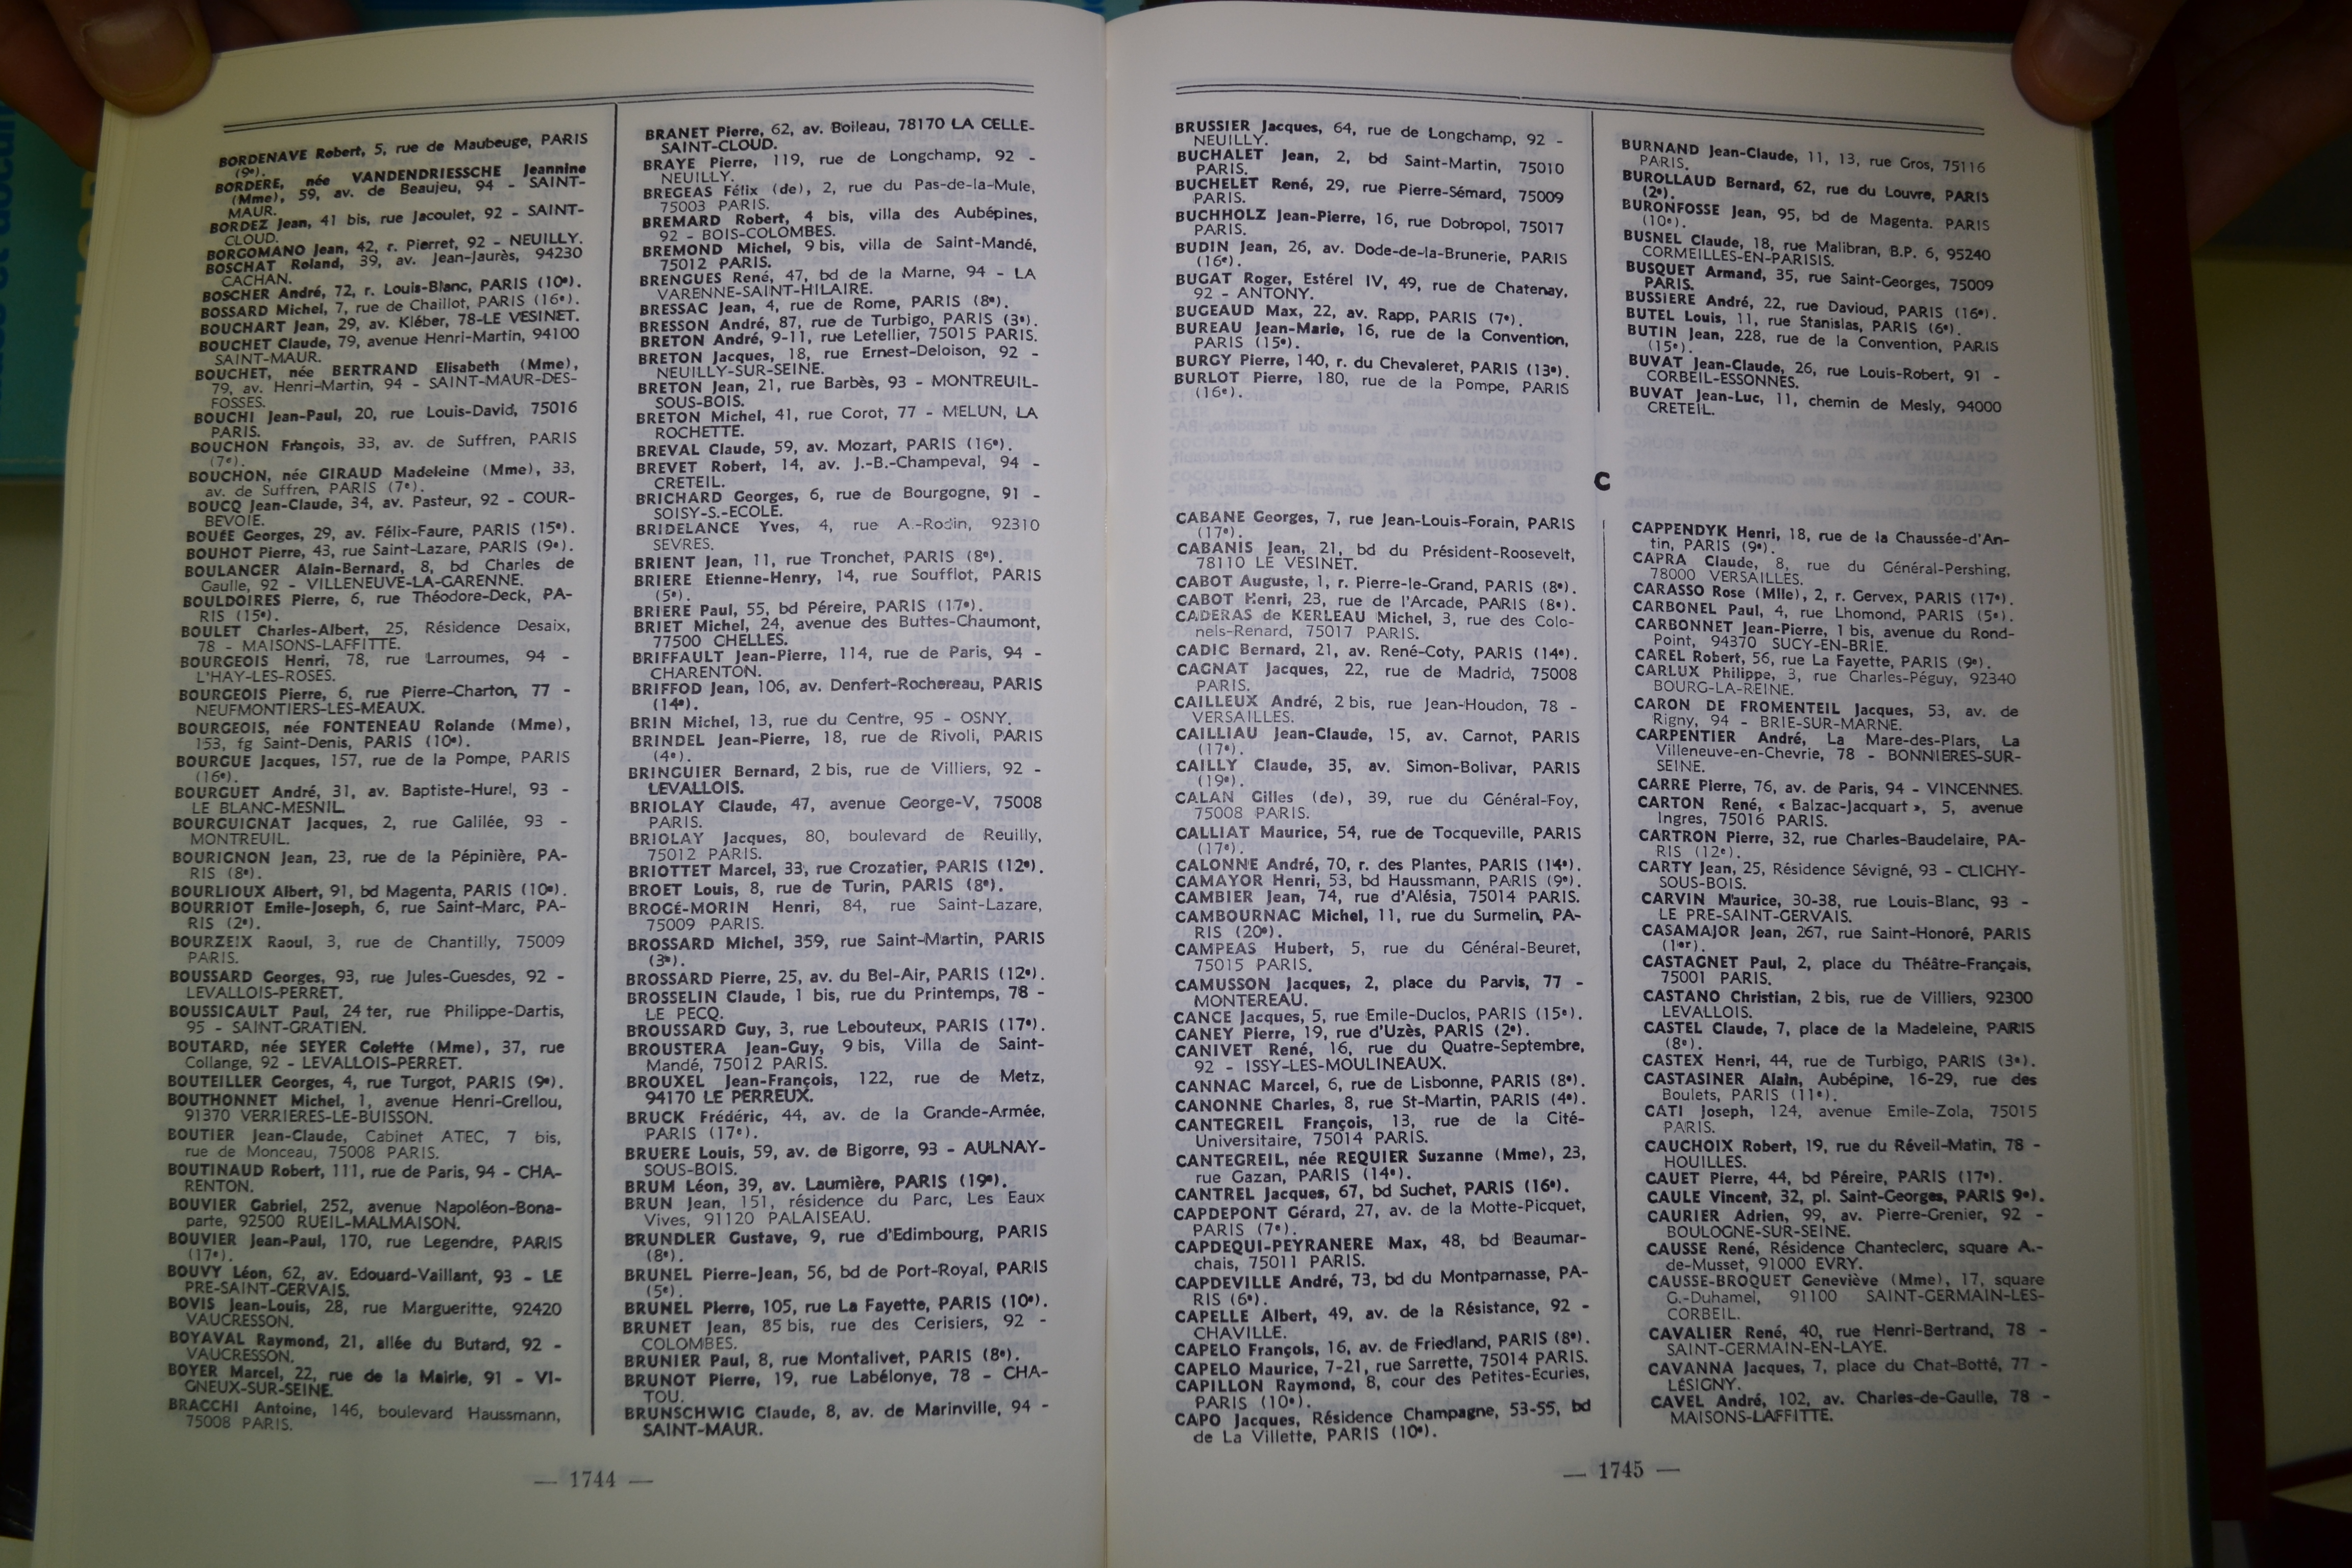 BORDENAVE Robert, 5, rue de Maubeuge, PARIS
(9e).
BORDERE, née VANDENDRIESSCHE Jeannine
(Mme), 59, av. de Beaujeu, 94 - SAINT-
MAUR.
BORDEZ Jean, 41 bis, rue Jacoulet, 92 - SAINT-
CLOUD.
BORGOMANO Jean, 42, r. Pierret, 92 - NEUILLY.
BOSCHAT Roland, 39, av. Jean-Jaurès, 94230
CACHAN.
BOSCHER André, 72, r. Louis-Blanc, PARIS (10e).
BOSSARD Michel, 7, rue de Chaillot, PARIS (16e).
BOUCHART Jean, 29, av. Kléber, 78-LE VESINET.
BOUCHET Claude, 79, avenue Henri-Martin, 94100
SAINT-MAUR.
BOUCHET, née BERTRAND Elisabeth (Mme),
79, av. Henri-Martin, 94 - SAINT-MAUR-DES-
FOSSES.
BOUCHI Jean-Paul, 20, rue Louis-David, 75016
PARIS.
BOUCHON François, 33, av. de Suffren, PARIS
(7e).
BOUCHON, née GIRAUD Madeleine (Mme), 33,
av. de Suffren, PARIS (7e).
BOUCQ Jean-Claude, 34, av. Pasteur, 92 - COUR-
BEVOIE.
BOUÉE Georges, 29, av. Félix-Faure, PARIS (15e).
BOUHOT Pierre, 43, rue Saint-Lazare, PARIS (9e).
BOULANGER Alain-Bernard, 8, bd Charles de
Gaulle, 92 - VILLENEUVE-LA-GARENNE.
BOULDOIRES Pierre, 6, rue Théodore-Deck, PA-
RIS (15e).
BOULET Charles-Albert, 25, Résidence Desaix,
78 - MAISONS-LAFFITTE.
BOURGEOIS Henri, 78, rue Larroumes, 94 -
L'HAY-LES-ROSES.
BOURGEOIS Pierre, 6, rue Pierre-Charton, 77 -
NEUFMONTIERS-LES-MEAUX.
BOURGEOIS, née FONTENEAU Rolande (Mme),
153, fg Saint-Denis, PARIS (10e).
BOURGUE Jacques, 157, rue de la Pompe, PARIS
(16e).
BOURGUET André, 31, av. Baptiste-Hurel, 93 -
LE BLANC-MESNIL.
BOURGUIGNAT Jacques, 2, rue Galilée, 93 -
MONTREUIL.
BOURIGNON Jean, 23, rue de la Pépinière, PA-
RIS (8e).
BOURLIOUX Albert, 91, bd Magenta, PARIS (10e).
BOURRIOT Emile-Joseph, 6, rue Saint-Marc, PA-
RIS (2e).
BOURZEIX Raoul, 3, rue de Chantilly, 75009
PARIS.
BOUSSARD Georges, 93, rue Jules-Guesdes, 92 -
LEVALLOIS-PERRET.
BOUSSICAULT Paul, 24 ter, rue Philippe-Dartis,
95 - SAINT-GRATIEN.
BOUTARD, née SEYER Colette (Mme), 37, rue
Collange, 92 - LEVALLOIS-PERRET.
BOUTEILLER Georges, 4, rue Turgot, PARIS (9e).
BOUTHONNET Michel, 1, avenue Henri-Grellou,
91370 VERRIERES-LE-BUISSON.
BOUTIER Jean-Claude, Cabinet ATEC, 7 bis,
rue de Monceau, 75008 PARIS.
BOUTINAUD Robert, 111, rue de Paris, 94 - CHA-
RENTON.
BOUVIER Gabriel, 252, avenue Napoléon-Bona-
parte, 92500 RUEIL-MALMAISON.
BOUVIER Jean-Paul, 170, rue Legendre, PARIS
(17e).
BOUVY Léon, 62, av. Edouard-Vaillant, 93 - LE
PRE-SAINT-GERVAIS.
BOVIS Jean-Louis, 28, rue Margueritte, 92420
VAUCRESSON.
BOYAVAL Raymond, 21, allée du Butard, 92 -
VAUCRESSON.
BOYER Marcel, 22, rue de la Mairie, 91 - VI-
GNEUX-SUR-SEINE.
BRACCHI Antoine, 146, boulevard Haussmann,
75008 PARIS.
BRANET Pierre, 62, av. Boileau, 78170 LA CELLE-
SAINT-CLOUD.
BRAYE Pierre, 119, rue de Longchamp, 92 -
NEUILLY.
BREGEAS Félix (de), 2, rue du Pas-de-la-Mule,
75003 PARIS.
BREMARD Robert, 4 bis, villa des Aubépines,
92 - BOIS-COLOMBES.
BREMOND Michel, 9 bis, villa de Saint-Mandé,
75012 PARIS.
BRENGUES René, 47, bd de la Marne, 94 - LA
VARENNE-SAINT-HILAIRE.
BRESSAC Jean, 4, rue de Rome, PARIS (8e).
BRESSON André, 87, rue de Turbigo, PARIS (3e).
BRETON André, 9-11, rue Letellier, 75015 PARIS.
BRETON Jacques, 18, rue Ernest-Deloison, 92 -
NEUILLY-SUR-SEINE.
BRETON Jean, 21, rue Barbès, 93 - MONTREUIL-
SOUS-BOIS.
BRETON Michel, 41, rue Corot, 77 - MELUN, LA
ROCHETTE.
BREVAL Claude, 59, av. Mozart, PARIS (16e).
BREVET Robert, 14, av. J.-B.-Champeval, 94 -
CRETEIL.
BRICHARD Georges, 6, rue de Bourgogne, 91 -
SOISY-S.-ECOLE.
BRIDELANCE Yves, 4, rue A.-Rodin, 92310
SEVRES.
BRIENT Jean, 11, rue Tronchet, PARIS (8e).
BRIERE Etienne-Henry, 14, rue Soufflot, PARIS
(5e).
BRIERE Paul, 55, bd Péreire, PARIS (17e).
BRIET Michel, 24, avenue des Buttes-Chaumont,
77500 CHELLES.
BRIFFAULT Jean-Pierre, 114, rue de Paris, 94 -
CHARENTON.
BRIFFOD Jean, 106, av. Denfert-Rochereau, PARIS
(14e).
BRIN Michel, 13, rue du Centre, 95 - OSNY.
BRINDEL Jean-Pierre, 18, rue de Rivoli, PARIS
(4e).
BRINGUIER Bernard, 2 bis, rue de Villiers, 92 -
LEVALLOIS.
BRIOLAY Claude, 47, avenue George-V, 75008
PARIS.
BRIOLAY Jacques, 80, boulevard de Reuilly,
75012 PARIS.
BRIOTTET Marcel, 33, rue Crozatier, PARIS (12e).
BROET Louis, 8, rue de Turin, PARIS (8e).
BROGÉ-MORIN Henri, 84, rue Saint-Lazare,
75009 PARIS.
BROSSARD Michel, 359, rue Saint-Martin, PARIS
(3e).
BROSSARD Pierre, 25, av. du Bel-Air, PARIS (12e).
BROSSELIN Claude, 1 bis, rue du Printemps, 78 -
LE PECQ.
BROUSSARD Guy, 3, rue Lebouteux, PARIS (17e).
BROUSTERA Jean-Guy, 9 bis, Villa de Saint-
Mandé, 75012 PARIS.
BROUXEL Jean-François, 122, rue de Metz,
94170 LE PERREUX.
BRUCK Frédéric, 44, av. de la Grande-Armée,
PARIS (17e).
BRUERE Louis, 59, av. de Bigorre, 93 - AULNAY-
SOUS-BOIS.
BRUM Léon, 39, av. Laumière, PARIS (19e).
BRUN Jean, 151, résidence du Parc, Les Eaux
Vives, 91120 PALAISEAU.
BRUNDLER Gustave, 9, rue d'Edimbourg, PARIS
(8e).
BRUNEL Pierre-Jean, 56, bd de Port-Royal, PARIS
(5e).
BRUNEL Pierre, 105, rue La Fayette, PARIS (10e).
BRUNET Jean, 85 bis, rue des Cerisiers, 92 -
COLOMBES.
BRUNIER Paul, 8, rue Montalivet, PARIS (8e).
BRUNOT Pierre, 19, rue Labélonye, 78 - CHA-
TOU.
BRUNSCHWIG Claude, 8, av. de Marinville, 94 -
SAINT-MAUR.
— 1744 —
BRUSSIER Jacques, 64, rue de Longchamp, 92 -
NEUILLY.
BUCHALET Jean, 2, bd Saint-Martin, 75010
PARIS.
BUCHELET René, 29, rue Pierre-Sémard, 75009
PARIS.
BUCHHOLZ Jean-Pierre, 16, rue Dobropol, 75017
PARIS.
BUDIN Jean, 26, av. Dode-de-la-Brunerie, PARIS
(16e).
BUGAT Roger, Estérel IV, 49, rue de Chatenay,
92 - ANTONY.
BUGEAUD Max, 22, av. Rapp, PARIS (7e).
BUREAU Jean-Marie, 16, rue de la Convention,
PARIS (15e).
BURGY Pierre, 140, r. du Chevaleret, PARIS (13e).
BURLOT Pierre, 180, rue de la Pompe, PARIS
(16e).
BURNAND Jean-Claude, 11, 13, rue Gros, 75116
PARIS.
BUROLLAUD Bernard, 62, rue du Louvre, PARIS
(2e).
BURONFOSSE Jean, 95, bd de Magenta. PARIS
(10e).
BUSNEL Claude, 18, rue Malibran, B.P. 6, 95240
CORMEILLES-EN-PARISIS.
BUSQUET Armand, 35, rue Saint-Georges, 75009
PARIS.
BUSSIERE André, 22, rue Davioud, PARIS (16e).
BUTEL Louis, 11, rue Stanislas, PARIS (6e).
BUTIN Jean, 228, rue de la Convention, PARIS
(15e).
BUVAT Jean-Claude, 26, rue Louis-Robert, 91 -
CORBEIL-ESSONNES.
BUVAT Jean-Luc, 11, chemin de Mesly, 94000
CRETEIL.
C
CABANE Georges, 7, rue Jean-Louis-Forain, PARIS
(17e).
CABANIS Jean, 21, bd du Président-Roosevelt,
78110 LE VESINET.
CABOT Auguste, 1, r. Pierre-le-Grand, PARIS (8e).
CABOT Henri, 23, rue de l'Arcade, PARIS (8e).
CADERAS de KERLEAU Michel, 3, rue des Colo-
nels-Renard, 75017 PARIS.
CADIC Bernard, 21, av. René-Coty, PARIS (14e).
CAGNAT Jacques, 22, rue de Madrid, 75008
PARIS.
CAILLEUX André, 2 bis, rue Jean-Houdon, 78 -
VERSAILLES.
CAILLIAU Jean-Claude, 15, av. Carnot, PARIS
(17e).
CAILLY Claude, 35, av. Simon-Bolivar, PARIS
(19e).
CALAN Gilles (de), 39, rue du Général-Foy,
75008 PARIS.
CALLIAT Maurice, 54, rue de Tocqueville, PARIS
(17e).
CALONNE André, 70, r. des Plantes, PARIS (14e).
CAMAYOR Henri, 53, bd Haussmann, PARIS (9e).
CAMBIER Jean, 74, rue d'Alésia, 75014 PARIS.
CAMBOURNAC Michel, 11, rue du Surmelin, PA-
RIS (20e).
CAMPEAS Hubert, 5, rue du Général-Beuret,
75015 PARIS.
CAMUSSON Jacques, 2, place du Parvis, 77 -
MONTEREAU.
CANCE Jacques, 5, rue Emile-Duclos, PARIS (15e).
CANEY Pierre, 19, rue d'Uzès, PARIS (2e).
CANIVET René, 16, rue du Quatre-Septembre,
92 - ISSY-LES-MOULINEAUX.
CANNAC Marcel, 6, rue de Lisbonne, PARIS (8e).
CANONNE Charles, 8, rue St-Martin, PARIS (4e).
CANTEGREIL François, 13, rue de la Cité-
Universitaire, 75014 PARIS.
CANTEGREIL, née REQUIER Suzanne (Mme), 23,
rue Gazan, PARIS (14e).
CANTREL Jacques, 67, bd Suchet, PARIS (16e).
CAPDEPONT Gérard, 27, av. de la Motte-Picquet,
PARIS (7e).
CAPDEQUI-PEYRANERE Max, 48, bd Beaumar-
chais, 75011 PARIS.
CAPDEVILLE André, 73, bd du Montparnasse, PA-
RIS (6e).
CAPELLE Albert, 49, av. de la Résistance, 92 -
CHAVILLE.
CAPELO François, 16, av. de Friedland, PARIS (8e).
CAPELO Maurice, 7-21, rue Sarrette, 75014 PARIS.
CAPILLON Raymond, 8, cour des Petites-Ecuries,
PARIS (10e).
CAPO Jacques, Résidence Champagne, 53-55, bd
de La Villette, PARIS (10e).
CAPPENDYK Henri, 18, rue de la Chaussée-d'An-
tin, PARIS (9e).
CAPRA Claude, 8, rue du Général-Pershing,
78000 VERSAILLES.
CARASSO Rose (Mlle), 2, r. Gervex, PARIS (17e).
CARBONEL Paul, 4, rue Lhomond, PARIS (5e).
CARBONNET Jean-Pierre, 1 bis, avenue du Rond-
Point, 94370 SUCY-EN-BRIE.
CAREL Robert, 56, rue La Fayette, PARIS (9e).
CARLUX Philippe, 3, rue Charles-Péguy, 92340
BOURG-LA-REINE.
CARON DE FROMENTEIL Jacques, 53, av. de
Rigny, 94 - BRIE-SUR-MARNE.
CARPENTIER André, La Mare-des-Plars, La
Villeneuve-en-Chevrie, 78 - BONNIERES-SUR-
SEINE.
CARRE Pierre, 76, av. de Paris, 94 - VINCENNES.
CARTON René, « Balzac-Jacquart », 5, avenue
Ingres, 75016 PARIS.
CARTRON Pierre, 32, rue Charles-Baudelaire, PA-
RIS (12e).
CARTY Jean, 25, Résidence Sévigné, 93 - CLICHY-
SOUS-BOIS.
CARVIN Maurice, 30-38, rue Louis-Blanc, 93 -
LE PRE-SAINT-GERVAIS.
CASAMAJOR Jean, 267, rue Saint-Honoré, PARIS
(1er).
CASTAGNET Paul, 2, place du Théâtre-Français,
75001 PARIS.
CASTANO Christian, 2 bis, rue de Villiers, 92300
LEVALLOIS.
CASTEL Claude, 7, place de la Madeleine, PARIS
(8e).
CASTEX Henri, 44, rue de Turbigo, PARIS (3e).
CASTASINER Alain, Aubépine, 16-29, rue des
Boulets, PARIS (11e).
CATI Joseph, 124, avenue Emile-Zola, 75015
PARIS.
CAUCHOIX Robert, 19, rue du Réveil-Matin, 78 -
HOUILLES.
CAUET Pierre, 44, bd Péreire, PARIS (17e).
CAULE Vincent, 32, pl. Saint-Georges, PARIS 9e).
CAURIER Adrien, 99, av. Pierre-Grenier, 92 -
BOULOGNE-SUR-SEINE.
CAUSSE René, Résidence Chanteclerc, square A.-
de-Musset, 91000 EVRY.
CAUSSE-BROQUET Geneviève (Mme), 17, square
G.-Duhamel, 91100 SAINT-GERMAIN-LES-
CORBEIL.
CAVALIER René, 40, rue Henri-Bertrand, 78 -
SAINT-GERMAIN-EN-LAYE.
CAVANNA Jacques, 7, place du Chat-Botté, 77 -
LÉSIGNY.
CAVEL André, 102, av. Charles-de-Gaulle, 78 -
MAISONS-LAFFITTE.
— 1745 —